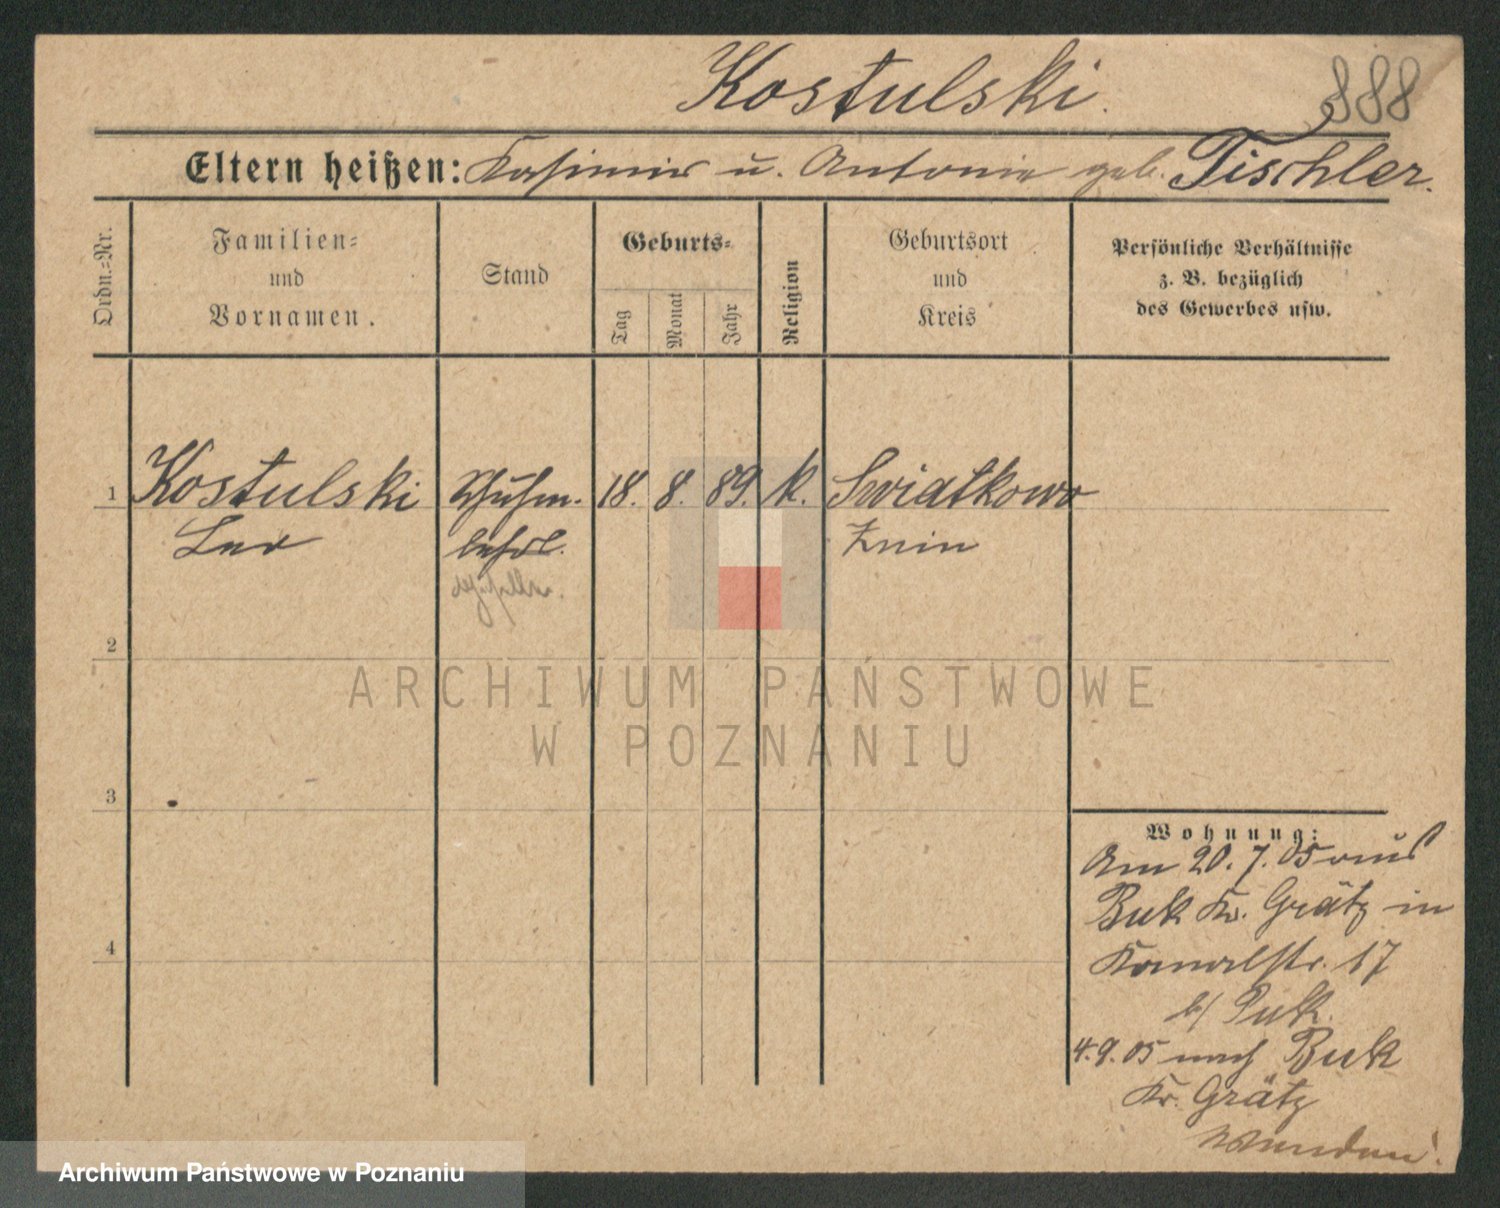 Kostulski.
888
Eltern heißen: Kasimir u. Antonie geb. Tischler.
Ordn.=Nr.
Familien=
und
Vornamen.
Stand
Geburts=
Tag
Monat
Jahr
Religion
Geburtsort
und
Kreis
Persönliche Verhältnisse
z. B. bezüglich
des Gewerbes usw.
1 Kostulski Schuhm. 18. 8. 89. k. Swiatkowo
Leo lehrl. Znin
2
ARCHIWUM PAŃSTWOWE
W POZNANIU
3
4
Wohnung:
Am 20. 7. 05 aus
Buk Kr. Grätz in
Kanalstr. 17
b/ Puk.
4. 9. 05 nach Buk
Kr. Grätz
Wenden!
Archiwum Państwowe w Poznaniu